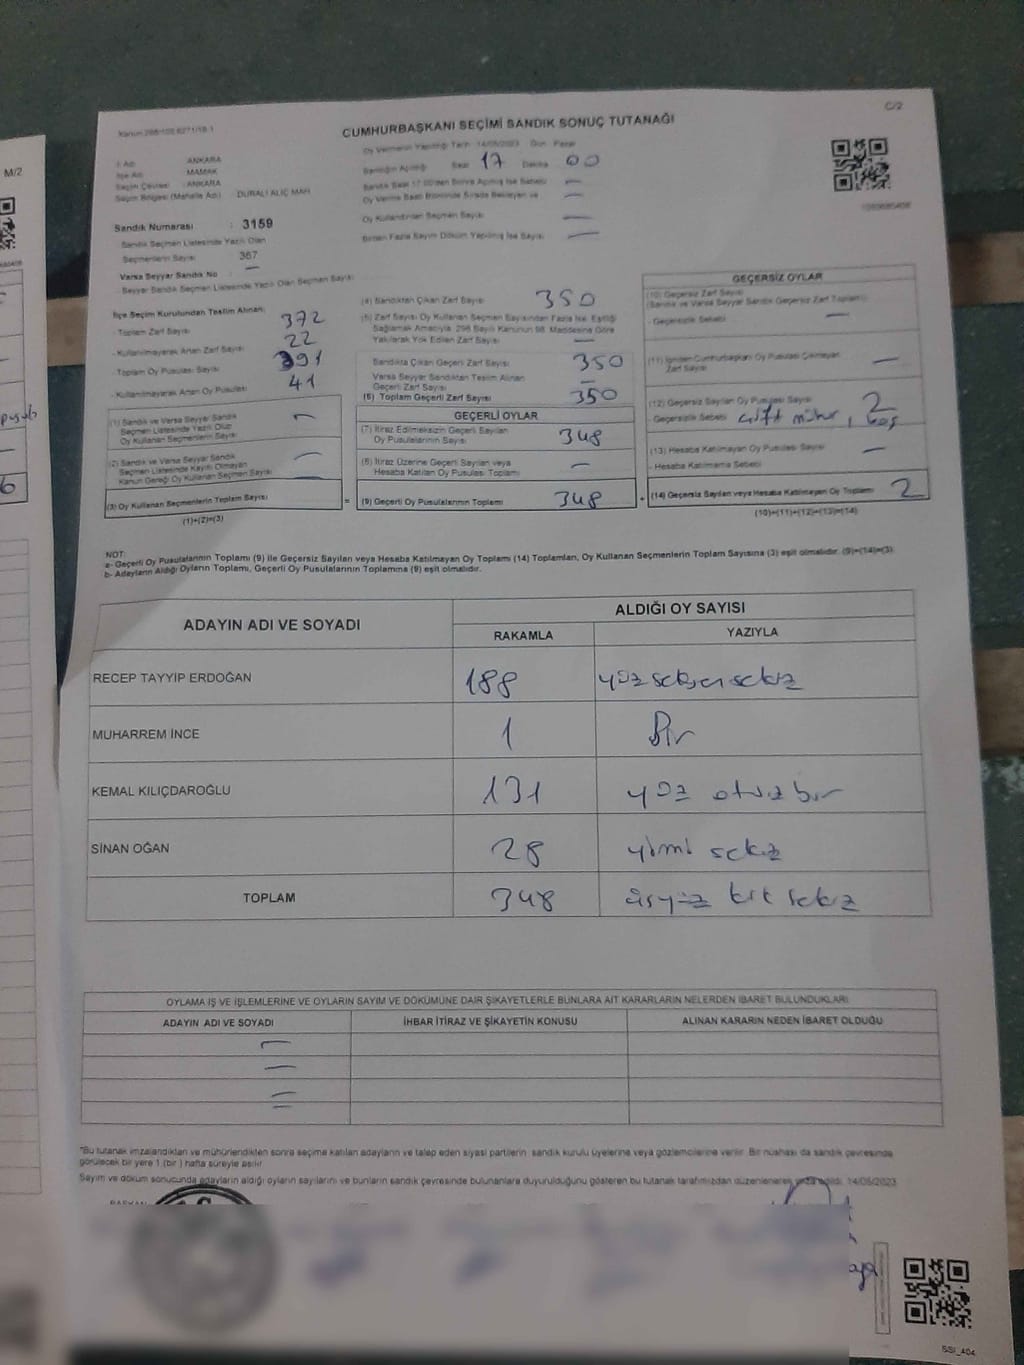 C/2
CUMHURBAŞKANI SEÇİMİ SANDIK SONUÇ TUTANAĞI
M/2
İl Adı : ANKARA
İlçe Adı : MAMAK
Seçim Çevresi : ANKARA
Seçim Bölgesi (Mahalle Adı) DURALİ ALIÇ MAH
Sandık Numarası : 3159
Sandık Seçmen Listesinde Yazılı Olan
Seçmenlerin Sayısı 367
Varsa Seyyar Sandık No : —
- Seyyar Sandık Seçmen Listesinde Yazılı Olan Seçmen Sayısı
Oy Vermenin Yapıldığı Tarih 14/05/2023 Gün Pazar
Sandığın Açıldığı Saat 17 Dakika 00
Oy Kullandırılan Seçmen Sayısı —
Birden Fazla Sayım Döküm Yapılmış İse Sayısı —
İlçe Seçim Kurulundan Teslim Alınan:
- Toplam Zarf Sayısı 372
- Kullanılmayarak Artan Zarf Sayısı 22
- Toplam Oy Pusulası Sayısı 391
- Kullanılmayarak Artan Oy Pusulası 41
(1) Sandık ve Varsa Seyyar Sandık
Seçmen Listesinde Yazılı Olup
Oy Kullanan Seçmenlerin Sayısı —
(2) Sandık ve Varsa Seyyar Sandık
Seçmen Listesinde Kayıtlı Olmayan
Kanun Gereği Oy Kullanan Seçmen Sayısı —
(3) Oy Kullanan Seçmenlerin Toplam Sayısı =
(1)+(2)=(3)
(4) Sandıktan Çıkan Zarf Sayısı 350
(5) Zarf Sayısı Oy Kullanan Seçmen Sayısından Fazla İse, Eşitliği
Sağlamak Amacıyla 298 Sayılı Kanunun 98. Maddesine Göre
Yakılarak Yok Edilen Zarf Sayısı —
Sandıkta Çıkan Geçerli Zarf Sayısı 350
Varsa Seyyar Sandıktan Teslim Alınan
Geçerli Zarf Sayısı —
(6) Toplam Geçerli Zarf Sayısı 350
GEÇERLİ OYLAR
(7) İtiraz Edilmeksizin Geçerli Sayılan
Oy Pusulalarının Sayısı 348
(8) İtiraz Üzerine Geçerli Sayılan veya
Hesaba Katılan Oy Pusulası Toplamı —
(9) Geçerli Oy Pusulalarının Toplamı 348 +
GEÇERSİZ OYLAR
(10) Geçersiz Zarf Sayısı
(Sandık ve Varsa Seyyar Sandık Geçersiz Zarf Toplamı)
- Geçersizlik Sebebi —
(11) İçinden Cumhurbaşkanı Oy Pusulası Çıkmayan
Zarf Sayısı —
(12) Geçersiz Sayılan Oy Pusulası Sayısı 2
- Geçersizlik Sebebi çift mühür, boş
(13) Hesaba Katılmayan Oy Pusulası Sayısı —
- Hesaba Katılmama Sebebi
(14) Geçersiz Sayılan veya Hesaba Katılmayan Oy Toplamı 2
(10)+(11)+(12)+(13)=(14)
NOT:
a- Geçerli Oy Pusulalarının Toplamı (9) ile Geçersiz Sayılan veya Hesaba Katılmayan Oy Toplamı (14) Toplamları, Oy Kullanan Seçmenlerin Toplam Sayısına (3) eşit olmalıdır. (9)+(14)=(3)
b- Adayların Aldığı Oyların Toplamı, Geçerli Oy Pusulalarının Toplamına (9) eşit olmalıdır.
ADAYIN ADI VE SOYADI
ALDIĞI OY SAYISI
RAKAMLA YAZIYLA
RECEP TAYYİP ERDOĞAN 188 yüz seksen sekiz
MUHARREM İNCE 1 Bir
KEMAL KILIÇDAROĞLU 131 yüz otuz bir
SİNAN OĞAN 28 yirmi sekiz
TOPLAM 348 üçyüz kırk sekiz
OYLAMA İŞ VE İŞLEMLERİNE VE OYLARIN SAYIM VE DÖKÜMÜNE DAİR ŞİKAYETLERLE BUNLARA AİT KARARLARIN NELERDEN İBARET BULUNDUKLARI
ADAYIN ADI VE SOYADI İHBAR İTİRAZ VE ŞİKAYETİN KONUSU ALINAN KARARIN NEDEN İBARET OLDUĞU
*Bu tutanak imzalandıktan ve mühürlendikten sonra seçime katılan adayların ve talep eden siyasi partilerin sandık kurulu üyelerine veya gözlemcilerine verilir. Bir nüshası da sandık çevresinde
görülecek bir yere 1 (bir) hafta süreyle asılır.
Sayım ve döküm sonucunda adayların aldığı oyların sayılarını ve bunların sandık çevresinde bulunanlara duyurulduğunu gösteren bu tutanak tarafımızdan düzenlenerek imza edildi. 14/05/2023
BAŞKAN
SSİ_404